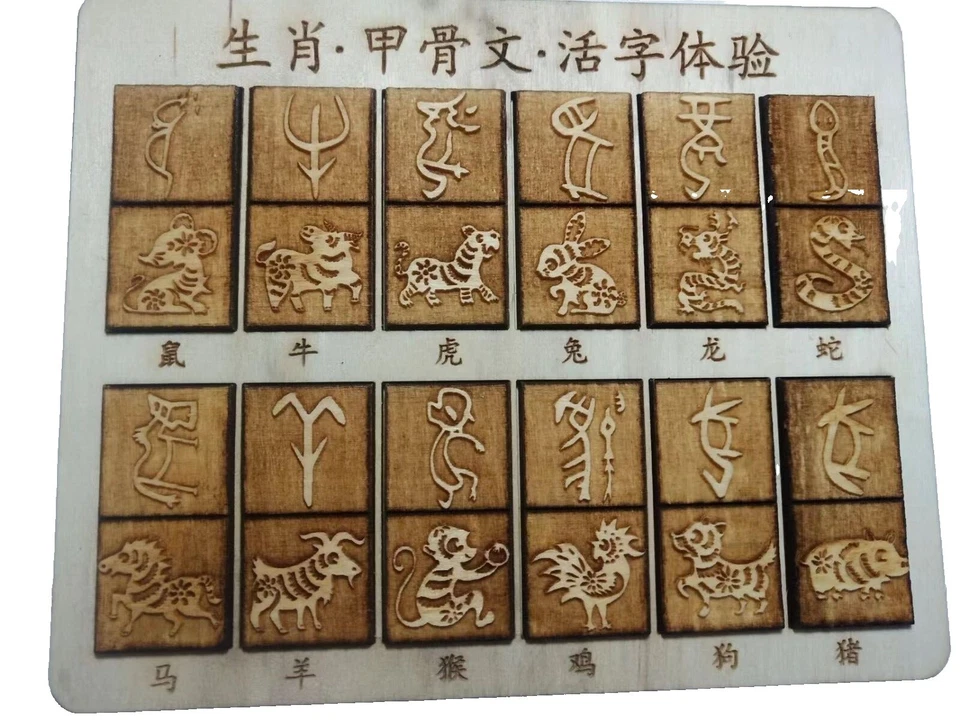 生肖·甲骨文·活字体验
鼠 牛 虎 兔 龙 蛇
马 羊 猴 鸡 狗 猪